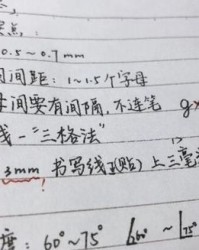 点:
0.5~0.7mm
间距: 1~1.5个字母
间要有间隔, 不连笔 g
线-"三格法"
3mm 书写线 (贴) 上三毫
度: 60°~75° 60° ~ 75°